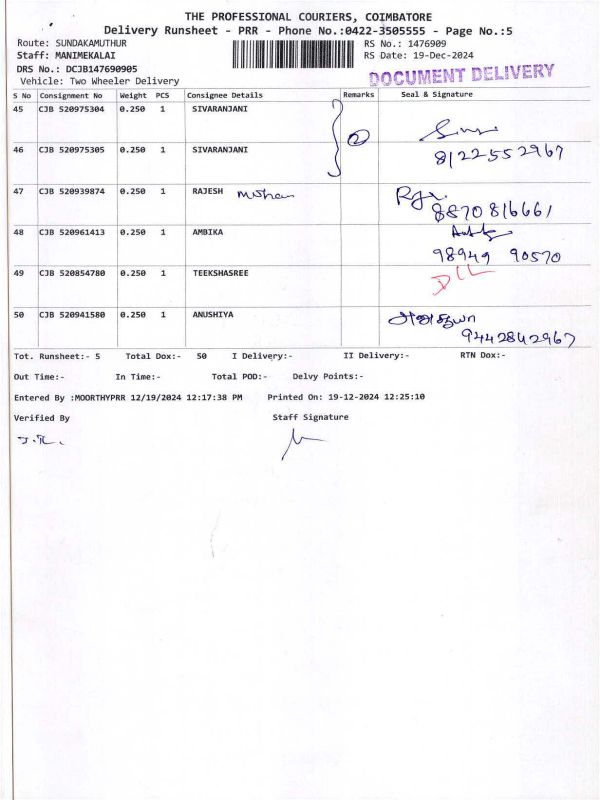 THE PROFESSIONAL COURIERS, COIMBATORE
Delivery Runsheet - PRR - Phone No.:0422-3505555 - Page No.:5
Route: SUNDAKAMUTHUR RS No.: 1476909
Staff: MANIMEKALAI RS Date: 19-Dec-2024
DRS No.: DCJB147690905
DOCUMENT DELIVERY
Vehicle: Two Wheeler Delivery
S No Consignment No Weight PCS Consignee Details Remarks Seal & Signature
45 CJB 520975304 0.250 1 SIVARANJANI
2
46 CJB 520975305 0.250 1 SIVARANJANI 8122552967
47 CJB 520939874 0.250 1 RAJESH
8870816661
48 CJB 520961413 0.250 1 AMBIKA
98949 90570
49 CJB 520854780 0.250 1 TEEKSHASREE D/L
50 CJB 520941580 0.250 1 ANUSHIYA அனுசூயா
9442842967
Tot. Runsheet:- 5 Total Dox:- 50 I Delivery:- II Delivery:- RTN Dox:-
Out Time:- In Time:- Total POD:- Delvy Points:-
Entered By :MOORTHYPRR 12/19/2024 12:17:38 PM Printed On: 19-12-2024 12:25:10
Verified By Staff Signature